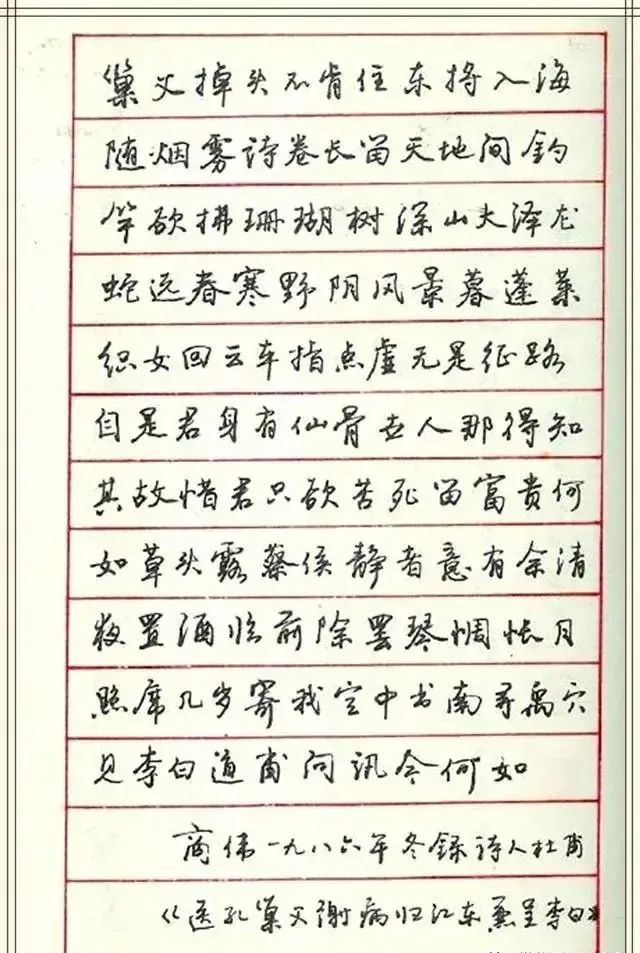 巢父掉头不肯住东将入海
随烟雾诗卷长留天地间钓
竿欲拂珊瑚树深山大泽龙
蛇远春寒野阴风景暮蓬莱
织女回云车指点虚无是征路
自是君身有仙骨世人那得知
其故惜君只欲苦死留富贵何
如草头露蔡侯静者意有余清
夜置酒临前除罢琴惆怅月
照席几岁寄我空中书南寻禹穴
见李白道甫问讯今何如
商伟一九八六年冬录诗人杜甫
《送孔巢父谢病归江东兼呈李白》